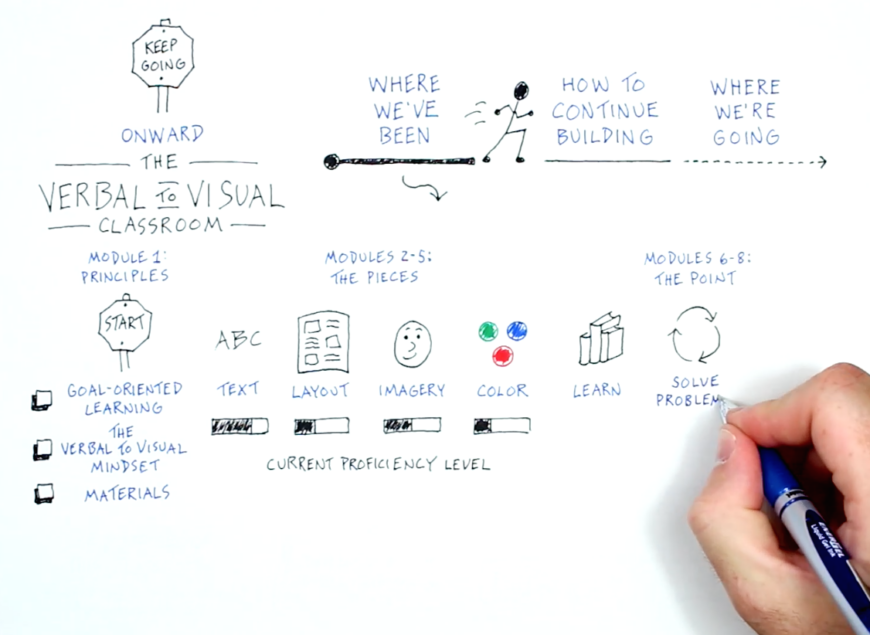 KEEP
GOING
ONWARD
THE
VERBAL TO VISUAL
CLASSROOM
WHERE
WE'VE
BEEN
HOW TO
CONTINUE
BUILDING
WHERE
WE'RE
GOING
MODULE 1:
PRINCIPLES
START
GOAL-ORIENTED
LEARNING
THE
VERBAL TO VISUAL
MINDSET
MATERIALS
MODULES 2-5:
THE PIECES
ABC
TEXT LAYOUT IMAGERY COLOR
CURRENT PROFICIENCY LEVEL
MODULES 6-8:
THE POINT
LEARN
SOLVE
PROBLEM
ENERGEL
Liquid Gel Ink